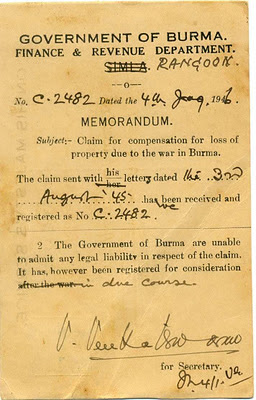 GOVERNMENT OF BURMA.
FINANCE & REVENUE DEPARTMENT.
SIMLA. RANGOON.
No. C. 2482 Dated the 4th 194
MEMORANDUM.
Subject:- Claim for compensation for loss of
property due to the war in Burma.
The claim sent with his/her letter dated the 3rd
August '45 has been received and
registered as No C. 2482.
2 The Government of Burma are unable
to admit any legal liability in respect of the claim.
It has, however been registered for consideration
after the war. in due course
for Secretary.